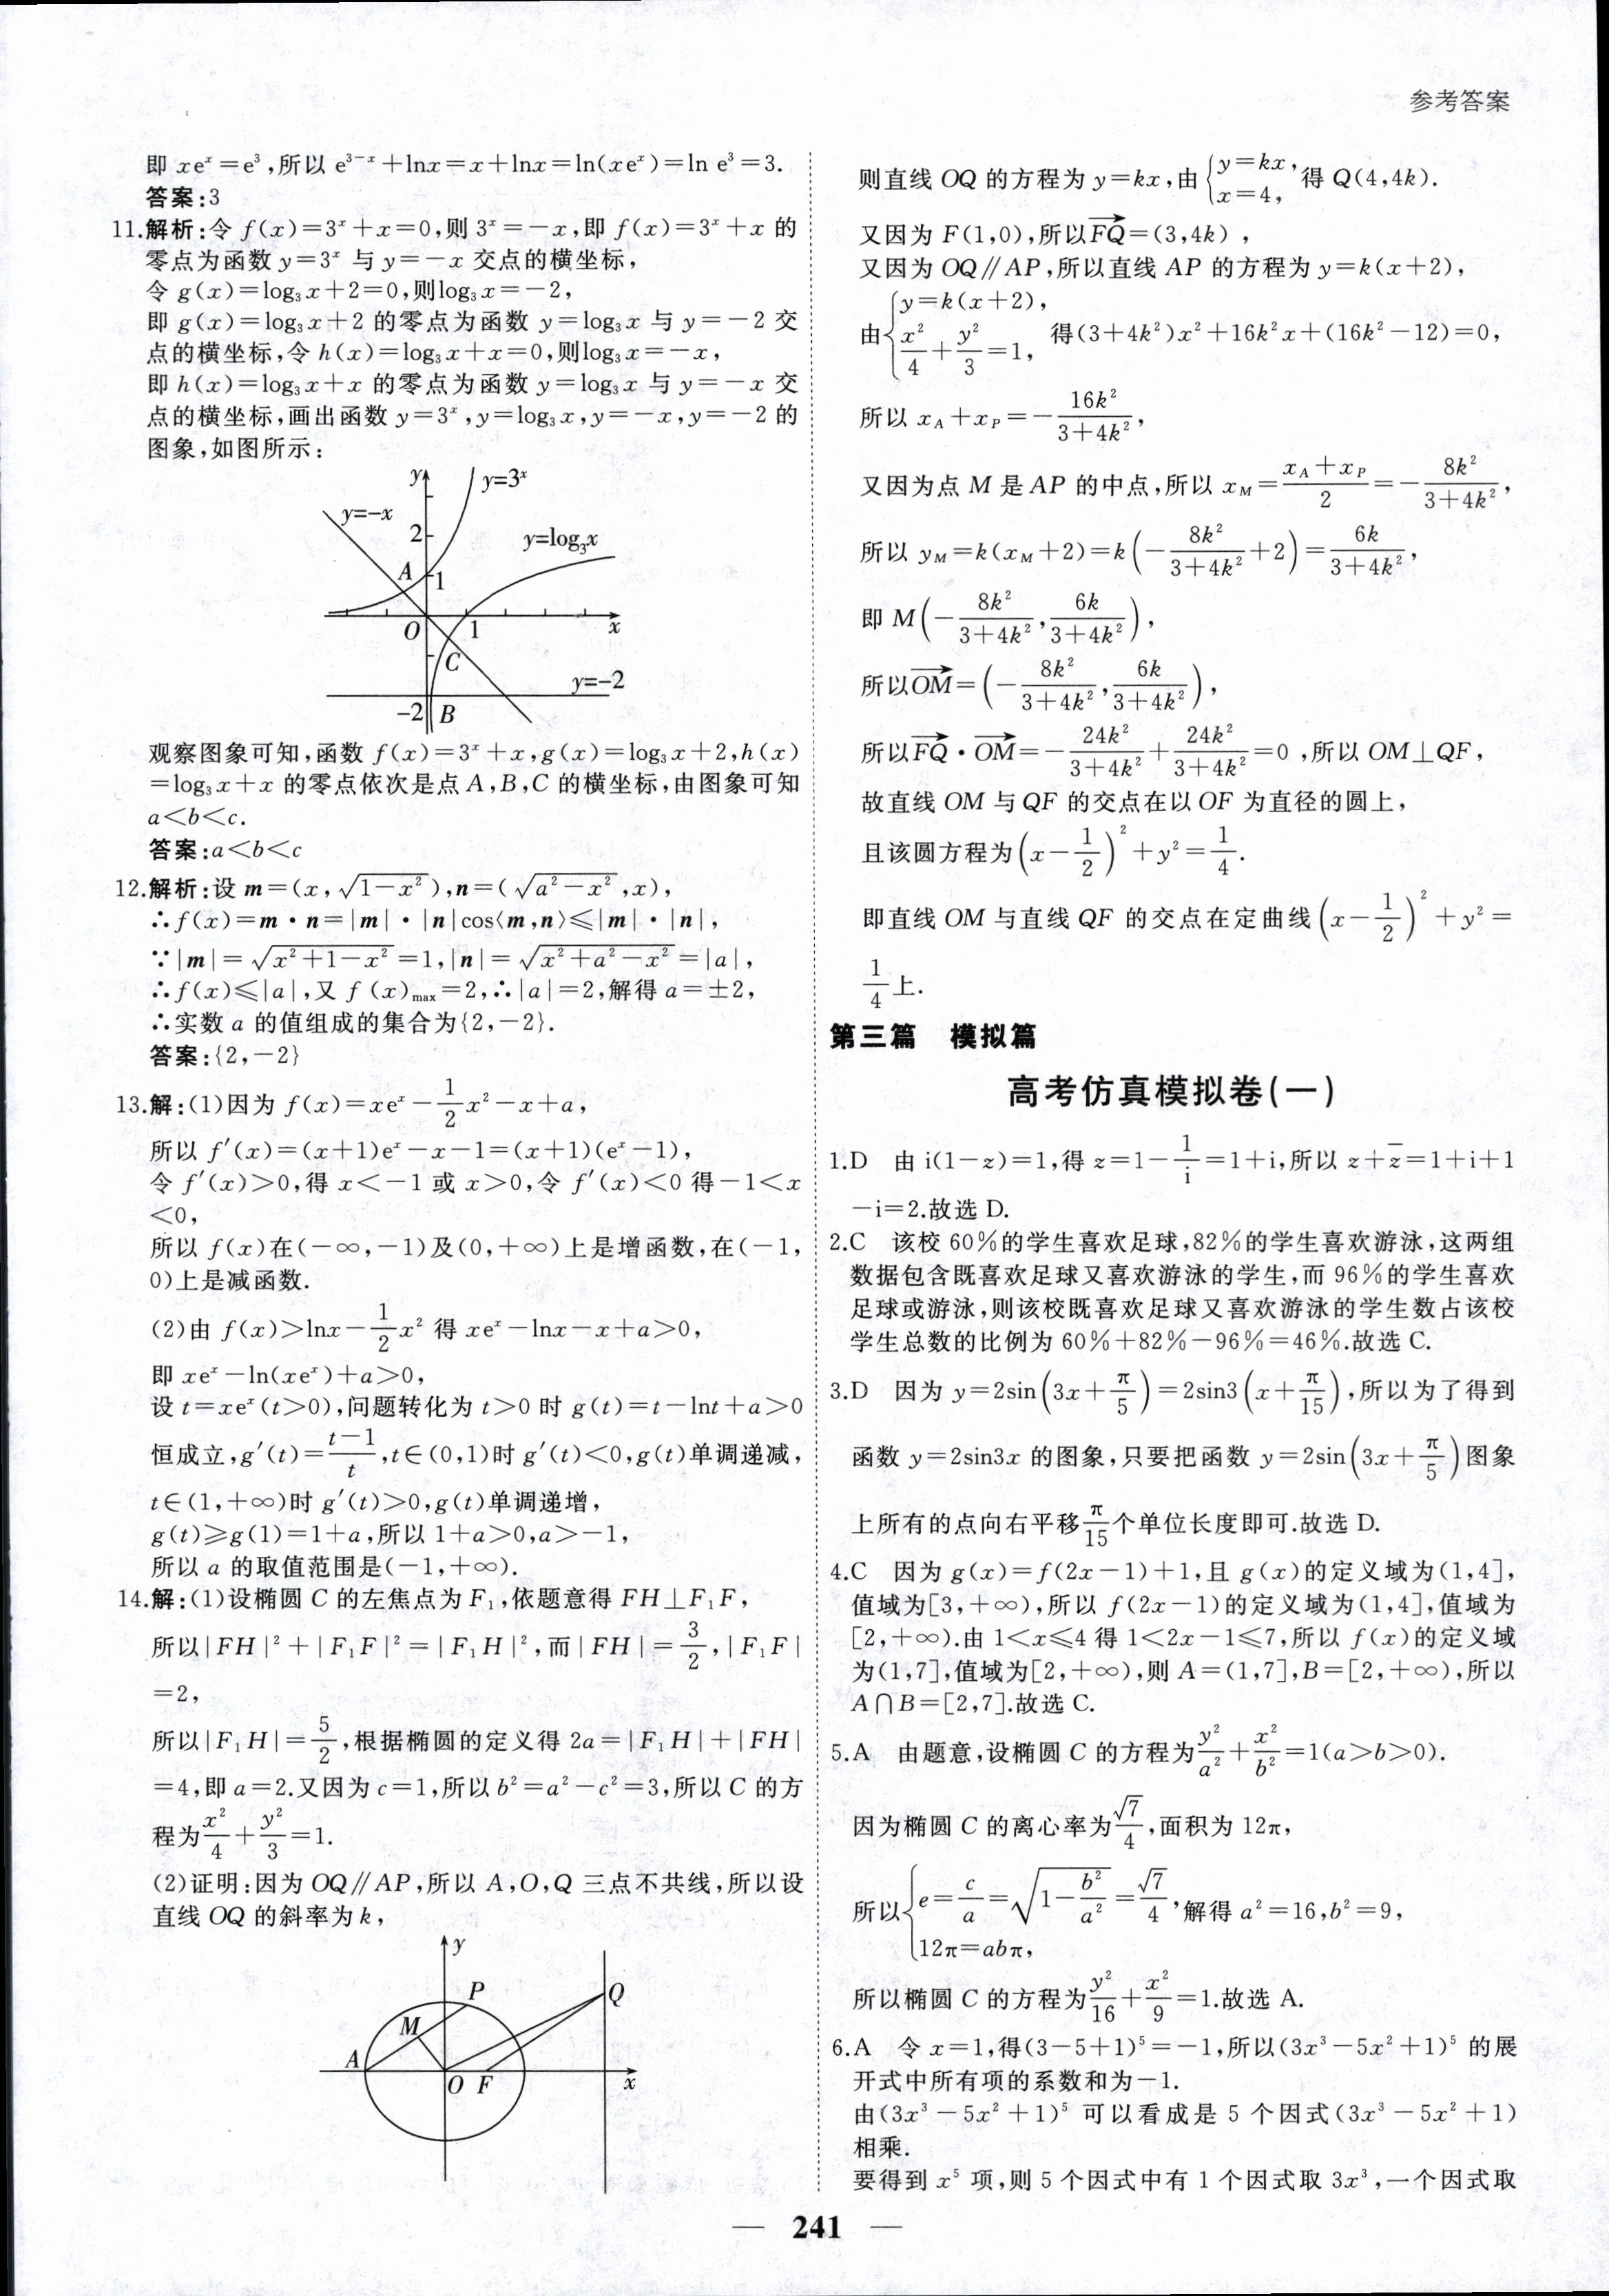 参考答案
即 xeˣ=e³,所以 e³⁻ˣ+lnx=x+lnx=ln(xeˣ)=ln e³=3.
答案:3
11.解析:令 f(x)=3ˣ+x=0,则 3ˣ=-x,即 f(x)=3ˣ+x 的
零点为函数 y=3ˣ 与 y=-x 交点的横坐标,
令 g(x)=log₃x+2=0,则log₃x=-2,
即 g(x)=log₃x+2 的零点为函数 y=log₃x 与 y=-2 交
点的横坐标,令 h(x)=log₃x+x=0,则log₃x=-x,
即 h(x)=log₃x+x 的零点为函数 y=log₃x 与 y=-x 交
点的横坐标,画出函数 y=3ˣ,y=log₃x,y=-x,y=-2 的
图象,如图所示:
y y=3ˣ
y=-x
2 y=log₃x
A 1
O 1 x
C
y=-2
-2 B
观察图象可知,函数 f(x)=3ˣ+x,g(x)=log₃x+2,h(x)
=log₃x+x 的零点依次是点 A,B,C 的横坐标,由图象可知
a<b<c.
答案:a<b<c
12.解析:设 m=(x,√(1-x²)),n=(√(a²-x²),x),
∴f(x)=m·n=|m|·|n|cos⟨m,n⟩≤|m|·|n|,
∵|m|=√(x²+1-x²)=1,|n|=√(x²+a²-x²)=|a|,
∴f(x)≤|a|,又 f(x)max=2,∴|a|=2,解得 a=±2,
∴实数 a 的值组成的集合为{2,-2}.
答案:{2,-2}
13.解:(1)因为 f(x)=xeˣ-1/2x²-x+a,
所以 f′(x)=(x+1)eˣ-x-1=(x+1)(eˣ-1),
令 f′(x)>0,得 x<-1 或 x>0,令 f′(x)<0 得-1<x
<0,
所以 f(x)在(-∞,-1)及(0,+∞)上是增函数,在(-1,
0)上是减函数.
(2)由 f(x)>lnx-1/2x² 得 xeˣ-lnx-x+a>0,
即 xeˣ-ln(xeˣ)+a>0,
设 t=xeˣ(t>0),问题转化为 t>0 时 g(t)=t-lnt+a>0
恒成立,g′(t)=(t-1)/t,t∈(0,1)时 g′(t)<0,g(t)单调递减,
t∈(1,+∞)时 g′(t)>0,g(t)单调递增,
g(t)≥g(1)=1+a,所以 1+a>0,a>-1,
所以 a 的取值范围是(-1,+∞).
14.解:(1)设椭圆 C 的左焦点为 F₁,依题意得 FH⊥F₁F,
所以|FH|²+|F₁F|²=|F₁H|²,而|FH|=3/2,|F₁F|
=2,
所以|F₁H|=5/2,根据椭圆的定义得 2a=|F₁H|+|FH|
=4,即 a=2.又因为 c=1,所以 b²=a²-c²=3,所以 C 的方
程为x²/4+y²/3=1.
(2)证明:因为 OQ∥AP,所以 A,O,Q 三点不共线,所以设
直线 OQ 的斜率为 k,
y
P Q
M
A
O F x
则直线 OQ 的方程为 y=kx,由{y=kx, x=4,得 Q(4,4k).
又因为 F(1,0),所以FQ→=(3,4k),
又因为 OQ∥AP,所以直线 AP 的方程为 y=k(x+2),
由{y=k(x+2), x²/4+y²/3=1, 得(3+4k²)x²+16k²x+(16k²-12)=0,
所以 x_A+x_P=-16k²/(3+4k²),
又因为点 M 是 AP 的中点,所以 x_M=(x_A+x_P)/2=-8k²/(3+4k²),
所以 y_M=k(x_M+2)=k(-8k²/(3+4k²)+2)=6k/(3+4k²),
即 M(-8k²/(3+4k²),6k/(3+4k²)),
所以OM→=(-8k²/(3+4k²),6k/(3+4k²)),
所以FQ→·OM→=-24k²/(3+4k²)+24k²/(3+4k²)=0,所以 OM⊥QF,
故直线 OM 与 QF 的交点在以 OF 为直径的圆上,
且该圆方程为(x-1/2)²+y²=1/4.
即直线 OM 与直线 QF 的交点在定曲线(x-1/2)²+y²=
1/4上.
第三篇 模拟篇
高考仿真模拟卷(一)
1.D 由 i(1-z)=1,得 z=1-1/i=1+i,所以 z+z̄=1+i+1
-i=2.故选 D.
2.C 该校 60%的学生喜欢足球,82%的学生喜欢游泳,这两组
数据包含既喜欢足球又喜欢游泳的学生,而 96%的学生喜欢
足球或游泳,则该校既喜欢足球又喜欢游泳的学生数占该校
学生总数的比例为 60%+82%-96%=46%.故选 C.
3.D 因为 y=2sin(3x+π/5)=2sin3(x+π/15),所以为了得到
函数 y=2sin3x 的图象,只要把函数 y=2sin(3x+π/5)图象
上所有的点向右平移π/15个单位长度即可.故选 D.
4.C 因为 g(x)=f(2x-1)+1,且 g(x)的定义域为(1,4],
值域为[3,+∞),所以 f(2x-1)的定义域为(1,4],值域为
[2,+∞).由 1<x≤4 得 1<2x-1≤7,所以 f(x)的定义域
为(1,7],值域为[2,+∞),则 A=(1,7],B=[2,+∞),所以
A∩B=[2,7].故选 C.
5.A 由题意,设椭圆 C 的方程为y²/a²+x²/b²=1(a>b>0).
因为椭圆 C 的离心率为√7/4,面积为 12π,
所以{e=c/a=√(1-b²/a²)=√7/4, 12π=abπ, 解得 a²=16,b²=9,
所以椭圆 C 的方程为y²/16+x²/9=1.故选 A.
6.A 令 x=1,得(3-5+1)⁵=-1,所以(3x³-5x²+1)⁵ 的展
开式中所有项的系数和为-1.
由(3x³-5x²+1)⁵ 可以看成是 5 个因式(3x³-5x²+1)
相乘.
要得到 x⁵ 项,则 5 个因式中有 1 个因式取 3x³,一个因式取
— 241 —